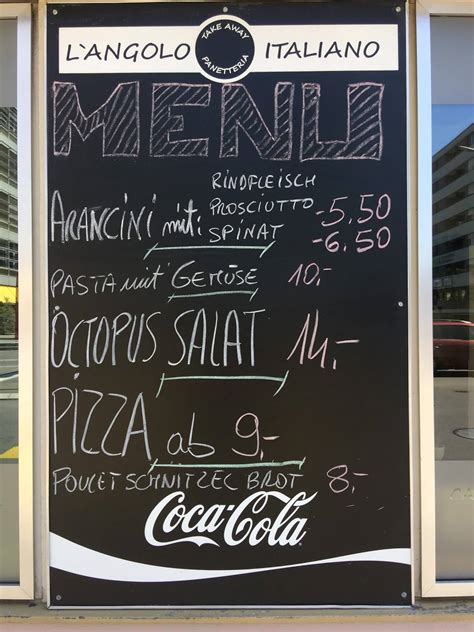 L'ANGOLO
TAKE AWAY
PANETTERIA
ITALIANO
MENU
RINDFLEISCH
ARANCINI mit: PROSCIUTTO -5.50
SPINAT -6.50
PASTA mit GEMÜSE 10.-
OCTOPUS SALAT 14.-
PIZZA ab 9.-
POULET SCHNITZEL BROT 8.-
Coca-Cola